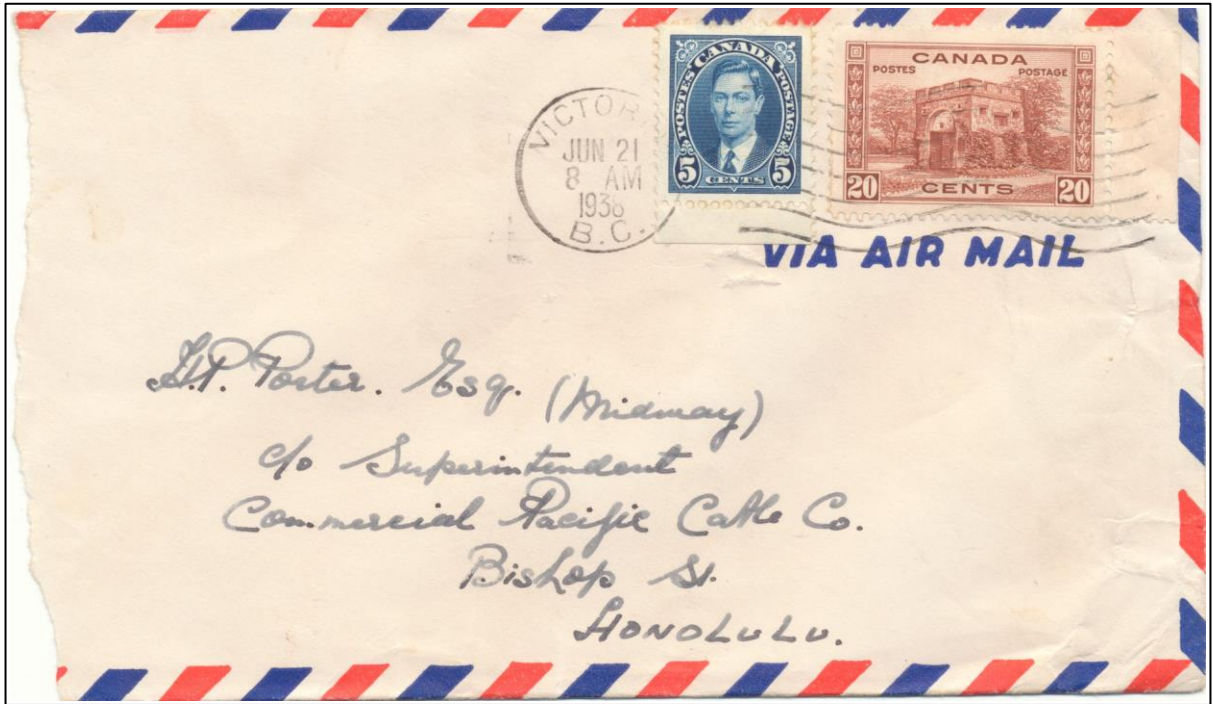 VICTORIA
JUN 21
8 AM
1938
B.C.
POSTES CANADA POSTAGE
5 CENTS 5
CANADA
POSTES POSTAGE
20 CENTS 20
VIA AIR MAIL
Porter. Esq. (Midway)
c/o Superintendent
Commercial Pacific Cable Co.
Bishop St.
HONOLULU.